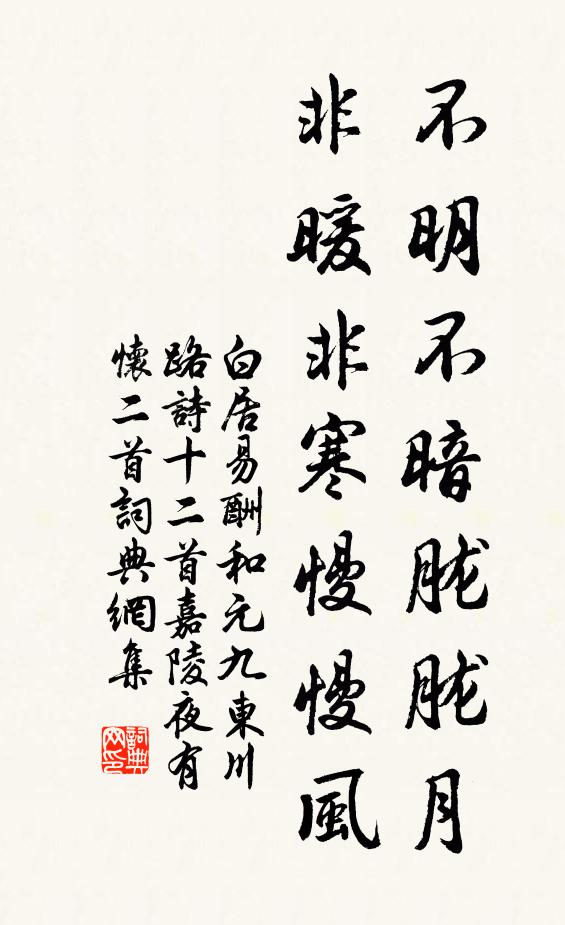 不明不暗胧胧月
非暖非寒慢慢風
白居易酬和元九東川
路詩十二首嘉陵夜有
懷二首詞典網集
詞典
网印